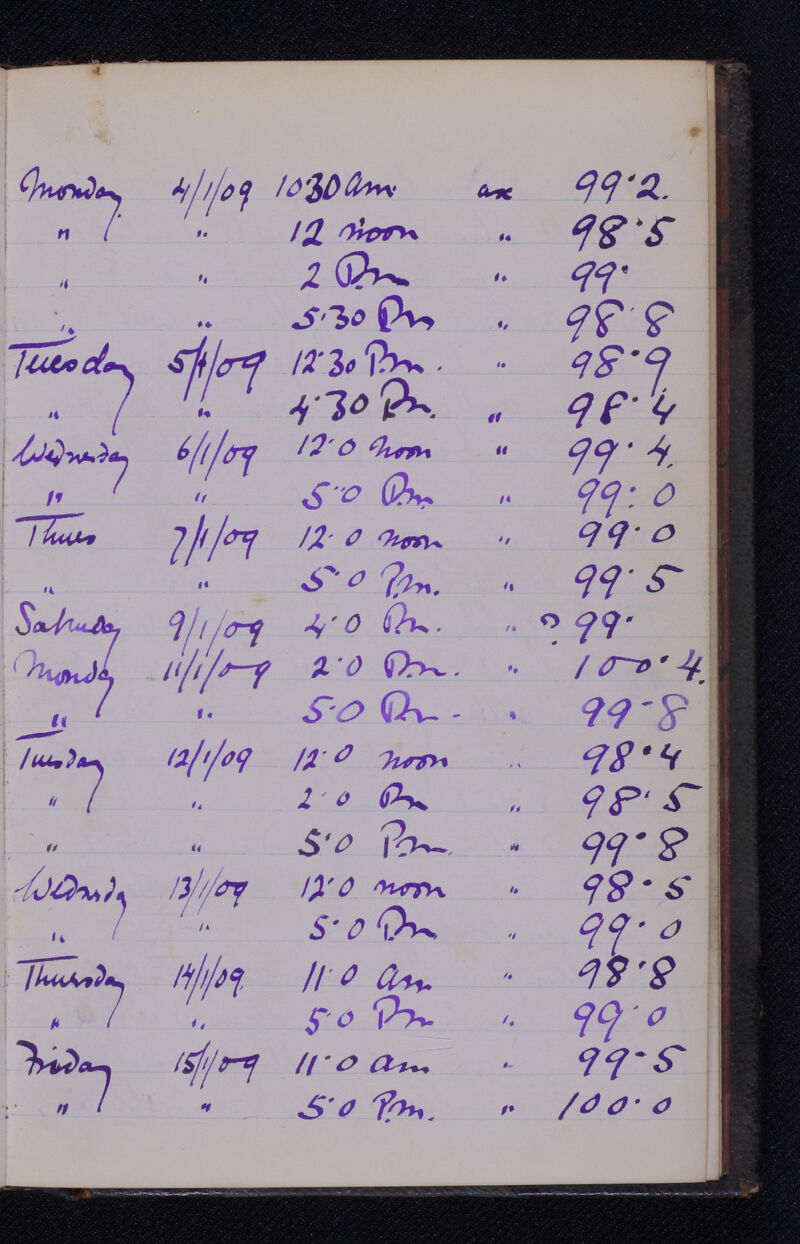 Monday 4/1/09 10·30 am ax 99·2.
" " 12 noon " 98·5
" " 2 P.m " 99·
" " 5·30 Pm " 98·8
Tuesday 5/1/09 12·30 P.m. " 98·9
" " 4·30 Pm. " 98·4
Wednesday 6/1/09 12·0 noon " 99·4.
" " 5·0 P.m. " 99·0
Thurs 7/1/09 12·0 noon " 99·0
" " 5·0 P.m. " 99·5
Saturday 9/1/09 4·0 Pm. " ? 99·
Monday 11/1/09 2·0 P.m. " 100·4.
" " 5·0 Pm. " 99·8
Tuesday 12/1/09 12·0 noon " 98·4
" " 2·0 Pm " 98·5
" " 5·0 P.m. " 99·8
Wednesday 13/1/09 12·0 noon " 98·5
" " 5·0 Pm " 99·0
Thursday 14/1/09. 11·0 am " 98·8
" " 5·0 Pm " 99·0
Friday 15/1/09 11·0 am " 99·5
" " 5·0 P.m. " 100·0